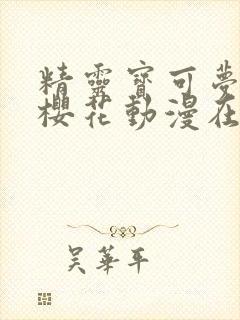 精靈寶可夢
櫻花動漫在
吴華平